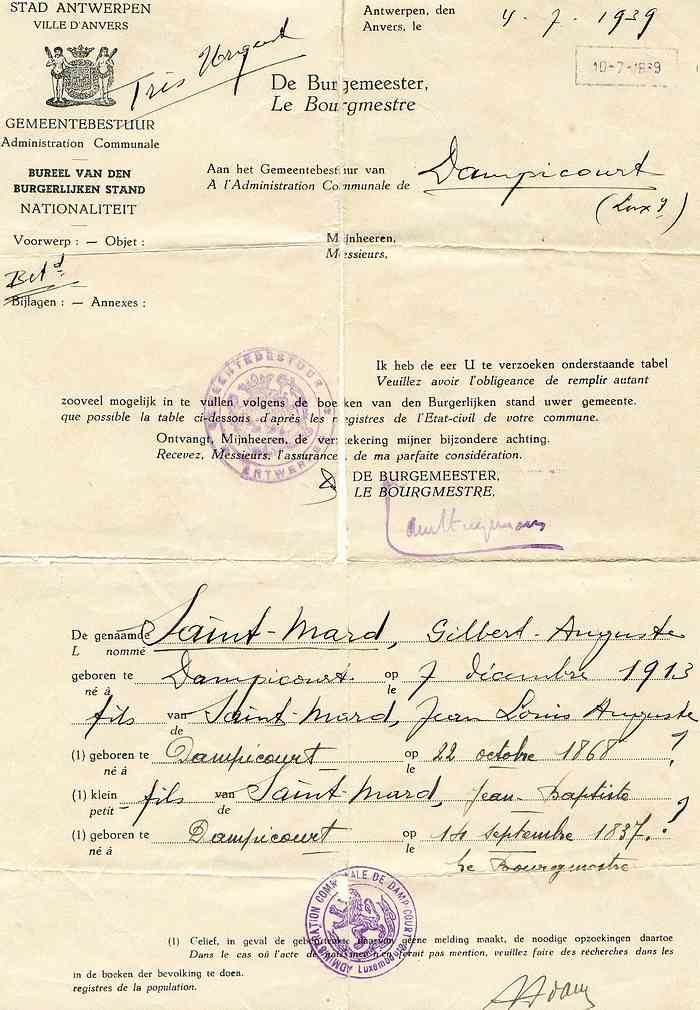 STAD ANTWERPEN
VILLE D'ANVERS
Très Urgent
GEMEENTEBESTUUR
Administration Communale
BUREEL VAN DEN
BURGERLIJKEN STAND
NATIONALITEIT
Voorwerp : — Objet :
Bijlagen : — Annexes :
Antwerpen, den
Anvers, le 4-7-1939
10-7-1939
De Burgemeester,
Le Bourgmestre
Aan het Gemeentebestuur van
A l'Administration Communale de Dampicourt
(Luxg)
Mijnheeren,
Messieurs,
Ik heb de eer U te verzoeken onderstaande tabel
Veuillez avoir l'obligeance de remplir autant
zooveel mogelijk in te vullen volgens de boeken van den Burgerlijken stand uwer gemeente.
que possible la table ci-dessous d'après les registres de l'Etat-civil de votre commune.
Ontvangt, Mijnheeren, de verzekering mijner bijzondere achting.
Recevez, Messieurs, l'assurance de ma parfaite considération.
GEMEENTEBESTUUR
ANTWERPEN
DE BURGEMEESTER,
LE BOURGMESTRE,
De genaamde Saint-Mard, Gilbert-Auguste
L nommé
geboren te Dampicourt op 7 décembre 1913
né à le
fils van Saint-Mard, Jean Louis Auguste
de
(1) geboren te Dampicourt op 22 octobre 1868 ?
né à le
(1) klein fils van Saint-Mard, Jean-Baptiste
petit- de
(1) geboren te Dampicourt op 14 septembre 1837. ?
né à le
Le Bourgmestre
ADMINISTRATION COMMUNALE DE DAMPICOURT
Luxembourg
(1) Gelief, in geval de geboorteakte daarvan geene melding maakt, de noodige opzoekingen daartoe
Dans le cas où l'acte de naissance n'en ferait pas mention, veuillez faire des recherches dans les
in de boeken der bevolking te doen.
registres de la population.